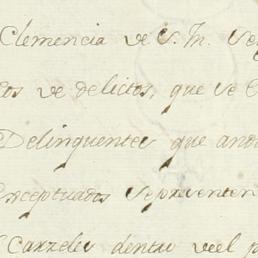 Clemencia de S. M. Se
os de delictos, que se C
Delinquentes que and
exceptuados se presenten
Carzeles dentro del p